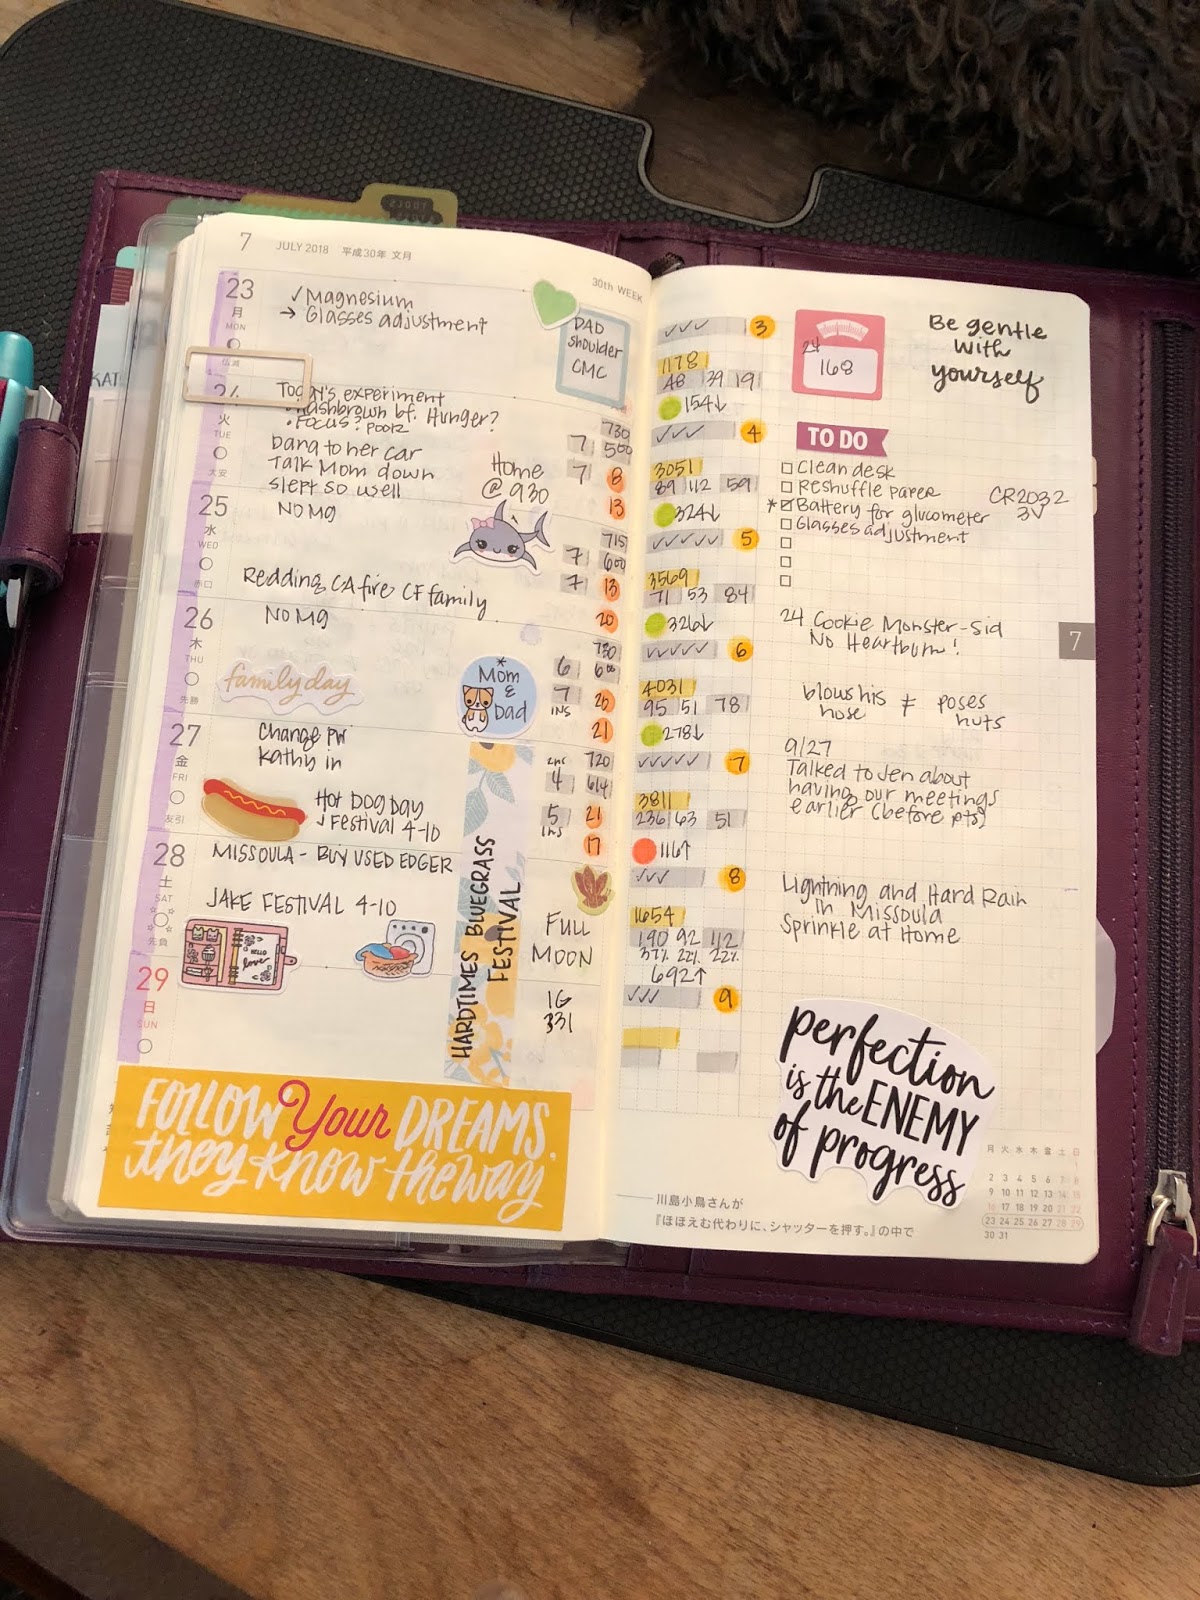 7 JULY 2018 平成30年 文月
30th WEEK
23
月
MON
✓ Magnesium
→ Glasses adjustment
DAD
shoulder
CMC
24
火
TUE
大安
experiment
Hashbrown bf. Hunger?
• Focus? poor
Dang to her car
Talk Mom down
slept so well
Home
@ 930
730
7 500
7 8
13
25
水
WED
No Mg
Redding CA fire CF family
715
7 600
7 13
20
26
木
THU
先勝
No Mg
family day
* Mom
&
Dad
730
6 600
7 26
INS
21
27
金
FRI
友引
Change pw
Kathy in
Hot Dog Day
Festival 4-10
720
4 614
5 21
INS
17
28
土
SAT
先負
MISSOULA - BUY USED EDGER
JAKE FESTIVAL 4-10
HELLO
love
HARDTIMES BLUEGRASS
FESTIVAL
FULL
MOON
29
日
SUN
1G
331
FOLLOW Your DREAMS.
they know the way
TOOLS
KAT
✓✓✓ 3
1178
48 39 19
154↓
✓✓✓ 4
3051
89 112 59
324↓
✓✓✓✓✓ 5
3569
71 53 84
326↓
✓✓✓✓✓ 6
4031
95 51 78
278↓
✓✓✓✓✓ 7
3811
236 63 51
116↑
✓✓✓ 8
1654
190 92 112
37% 22% 22%
692↑
✓✓✓ 9
24
168
Be gentle
with
yourself
TO DO
Clean desk
Reshuffle paper
* Battery for glucometer
CR2032
3V
Glasses adjustment
24 Cookie Monster - Sid
No Heartburn!
7
blows his ≠ poses
nose nuts
9/27
Talked to Jen about
having our meetings
earlier (before pts)
Lightning and Hard Rain
in Missoula
Sprinkle at Home
perfection
is the ENEMY
of progress
月 火 水 木 金 土 日
1
2 3 4 5 6 7 8
9 10 11 12 13 14 15
16 17 18 19 20 21 22
23 24 25 26 27 28 29
30 31
川島小鳥さんが
『ほほえむ代わりに、シャッターを押す。』の中で